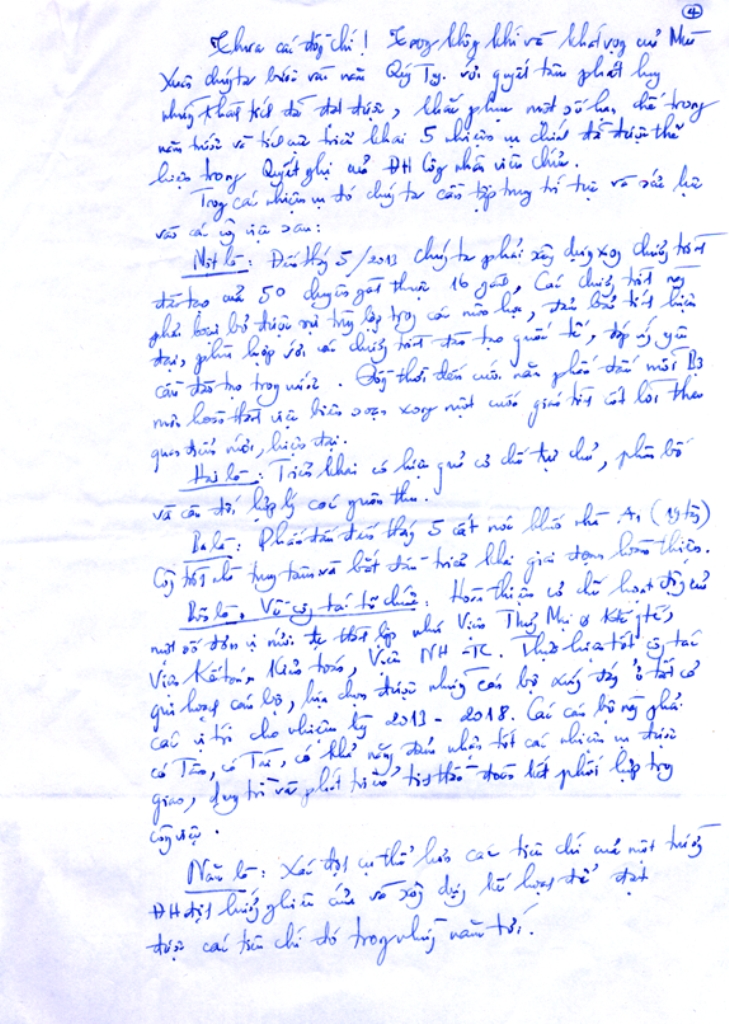 4
Thưa các đồng chí! Trong không khí và khát vọng của Mùa
Xuân chúng ta bước vào năm Quý Tỵ. với quyết tâm phát huy
những thành tích đã đạt được, khắc phục một số hạn chế trong
năm trước và tiếp tục triển khai 5 nhiệm vụ chính đã được thể
hiện trong Quyết nghị của ĐH Công nhân viên chức.
Trong các nhiệm vụ đó chúng ta cần tập trung trí tuệ và sức lực
vào các công việc sau:
Một là: Đến tháng 5/2013 chúng ta phải xây dựng xong chương trình
đào tạo của 50 chuyên ngành thuộc 16 ngành, Các chương trình này
phải loại bỏ được sự trùng lặp trong các môn học, đảm bảo tính hiện
đại, phù hợp với các chương trình đào tạo quốc tế, đáp ứng yêu
cầu đào tạo trong nước. Đồng thời đến cuối năm phấn đấu mỗi B3
môn hoàn thành việc biên soạn xong một cuốn giáo trình cốt lõi theo
quan điểm mới, hiện đại.
Hai là: Triển khai có hiệu quả cơ chế tự chủ, phân bổ
và cân đối, hợp lý các nguồn thu.
Ba là: Phấn đấu đến tháng 5 cất nóc khối nhà A1 (19 tầng)
Công trình nhà trung tâm và bắt đầu triển khai giai đoạn hoàn thiện.
Bốn là, Về công tác tổ chức: Hoàn thiện cơ chế hoạt động của
một số đơn vị mới được thành lập như Viện Thương Mại & KT quốc tế,
Viện Kế toán, Kiểm toán, Viện NH-TC. Thực hiện tốt công tác
quy hoạch cán bộ, lựa chọn được những cán bộ xứng đáng ở tất cả
các vị trí cho nhiệm kỳ 2013 - 2018. Các cán bộ này phải
có Tâm, có Tài, có khả năng đảm nhận tốt các nhiệm vụ được
giao, duy trì và phát triển tinh thần đoàn kết phối hợp trong
công việc.
Năm là: Xác định cụ thể hơn các tiêu chí của một trường
ĐH định hướng nghiên cứu và xây dựng kế hoạch để đạt
được các tiêu chí đó trong những năm tới.